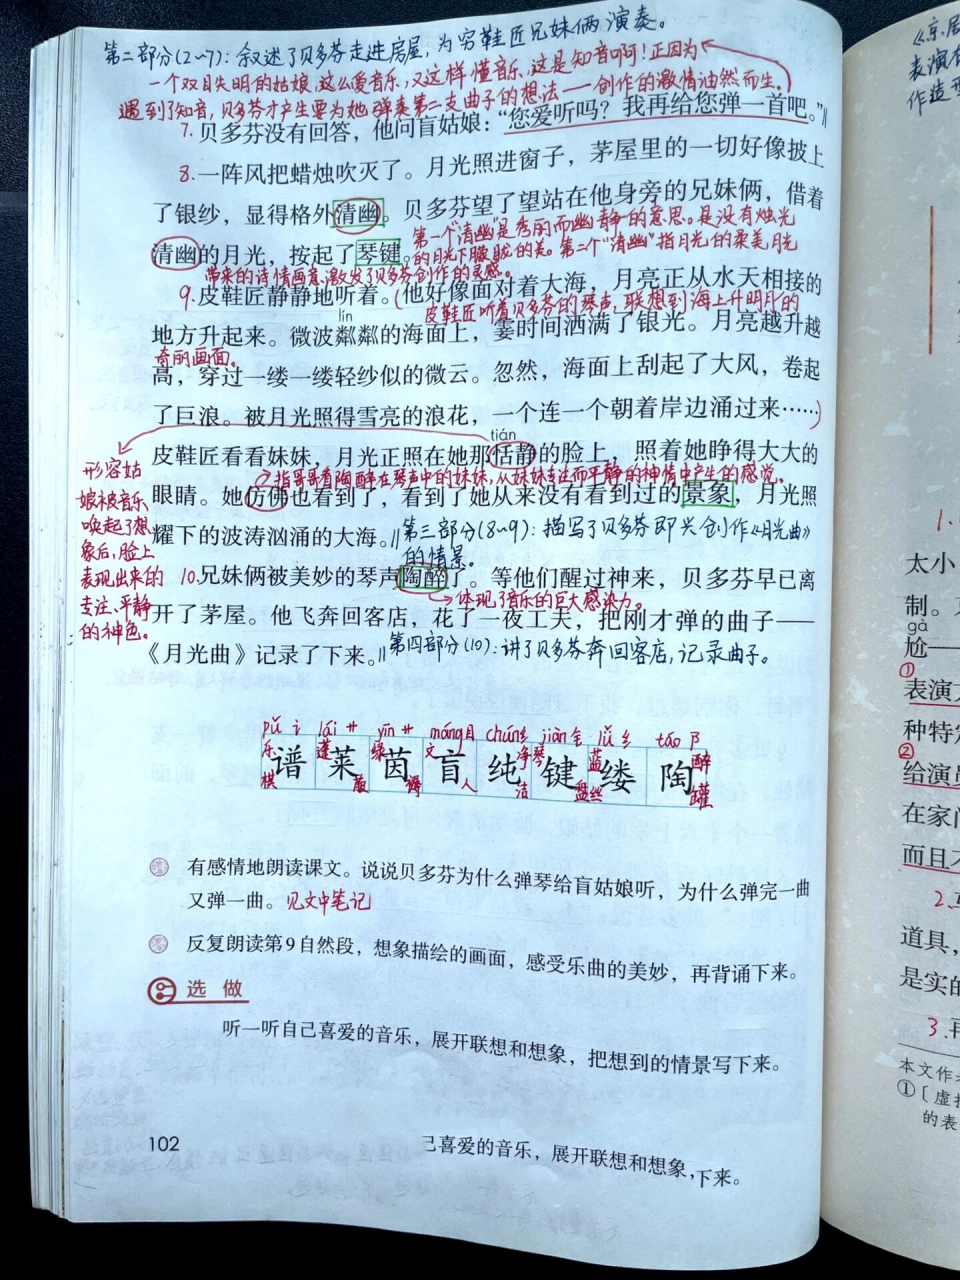 第二部分(2~7)：叙述了贝多芬走进房屋，为穷鞋匠兄妹俩演奏。
一个双目失明的姑娘，这么爱音乐，又这样懂音乐，这是知音啊！正因为
遇到了知音，贝多芬才产生要为她弹奏第二支曲子的想法——创作的激情油然而生。
7.贝多芬没有回答，他问盲姑娘：“您爱听吗？我再给您弹一首吧。”‖
8.一阵风把蜡烛吹灭了。月光照进窗子，茅屋里的一切好像披上
了银纱，显得格外清幽。贝多芬望了望站在他身旁的兄妹俩，借着
第一个“清幽”是秀丽而幽静的意思。是没有烛光
清幽的月光，按起了琴键。
的月光下朦胧的美。第二个“清幽”指月光的柔美，月光
带来的诗情画意，激发了贝多芬创作的灵感。
9.皮鞋匠静静地听着。（他好像面对着大海，月亮正从水天相接的
皮鞋匠听着贝多芬的琴声，联想到海上升明月的
lín
地方升起来。微波粼粼的海面上，霎时间洒满了银光。月亮越升越
奇丽画面。
高，穿过一缕一缕轻纱似的微云。忽然，海面上刮起了大风，卷起
了巨浪。被月光照得雪亮的浪花，一个连一个朝着岸边涌过来……）
tián
皮鞋匠看看妹妹，月光正照在她那恬静的脸上，照着她睁得大大的
指哥哥看陶醉在琴声中的妹妹，从妹妹专注而平静的神情中产生的感觉。
眼睛。她仿佛也看到了，看到了她从来没有看到过的景象，月光照
耀下的波涛汹涌的大海。‖第三部分(8~9)：描写了贝多芬即兴创作《月光曲》
的情景。
形容姑
娘被音乐
唤起了想
象后，脸上
表现出来的
专注、平静
的神色。
10.兄妹俩被美妙的琴声陶醉了。等他们醒过神来，贝多芬早已离
体现了音乐的巨大感染力。
开了茅屋。他飞奔回客店，花了一夜工夫，把刚才弹的曲子——
《月光曲》记录了下来。‖第四部分(10)：讲了贝多芬奔回客店，记录曲子。
pǔ 讠 lái 艹 yīn 艹 máng 目 chún 纟 jiàn 钅 lǚ 纟 táo 阝
乐 蓬 绿 文 净 琴 蓝 醉
谱 莱 茵 盲 纯 键 缕 陶
棋 菔 褥 人 洁 盘 丝 罐
有感情地朗读课文。说说贝多芬为什么弹琴给盲姑娘听，为什么弹完一曲
又弹一曲。见文中笔记
反复朗读第9自然段，想象描绘的画面，感受乐曲的美妙，再背诵下来。
选做
听一听自己喜爱的音乐，展开联想和想象，把想到的情景写下来。
102
己喜爱的音乐，展开联想和想象，下来。
《京剧
表演
作造型
1.
太小
制。
gà
尬——
①
表演
种特定
②
给演员
在家
而且不
2.
道具，
是实的
3.再
本文作
①［虚拟
的表